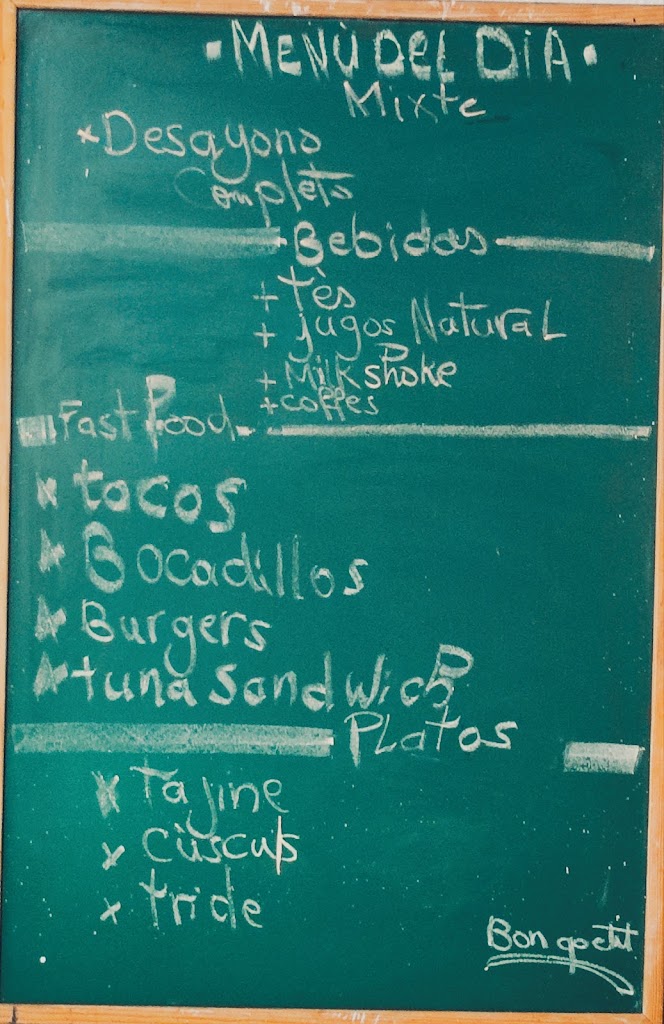 • MENÙ DEL DIA •
Mixte
Desayono
Completo
Bebidas
+ Tès
+ jugos NaturaL
+ MilkShake
+ coffes
Fast Food
tacos
Bocadillos
Burgers
tuna Sandwich
PLatos
Tajine
Cùscus
tride
Bon apetit